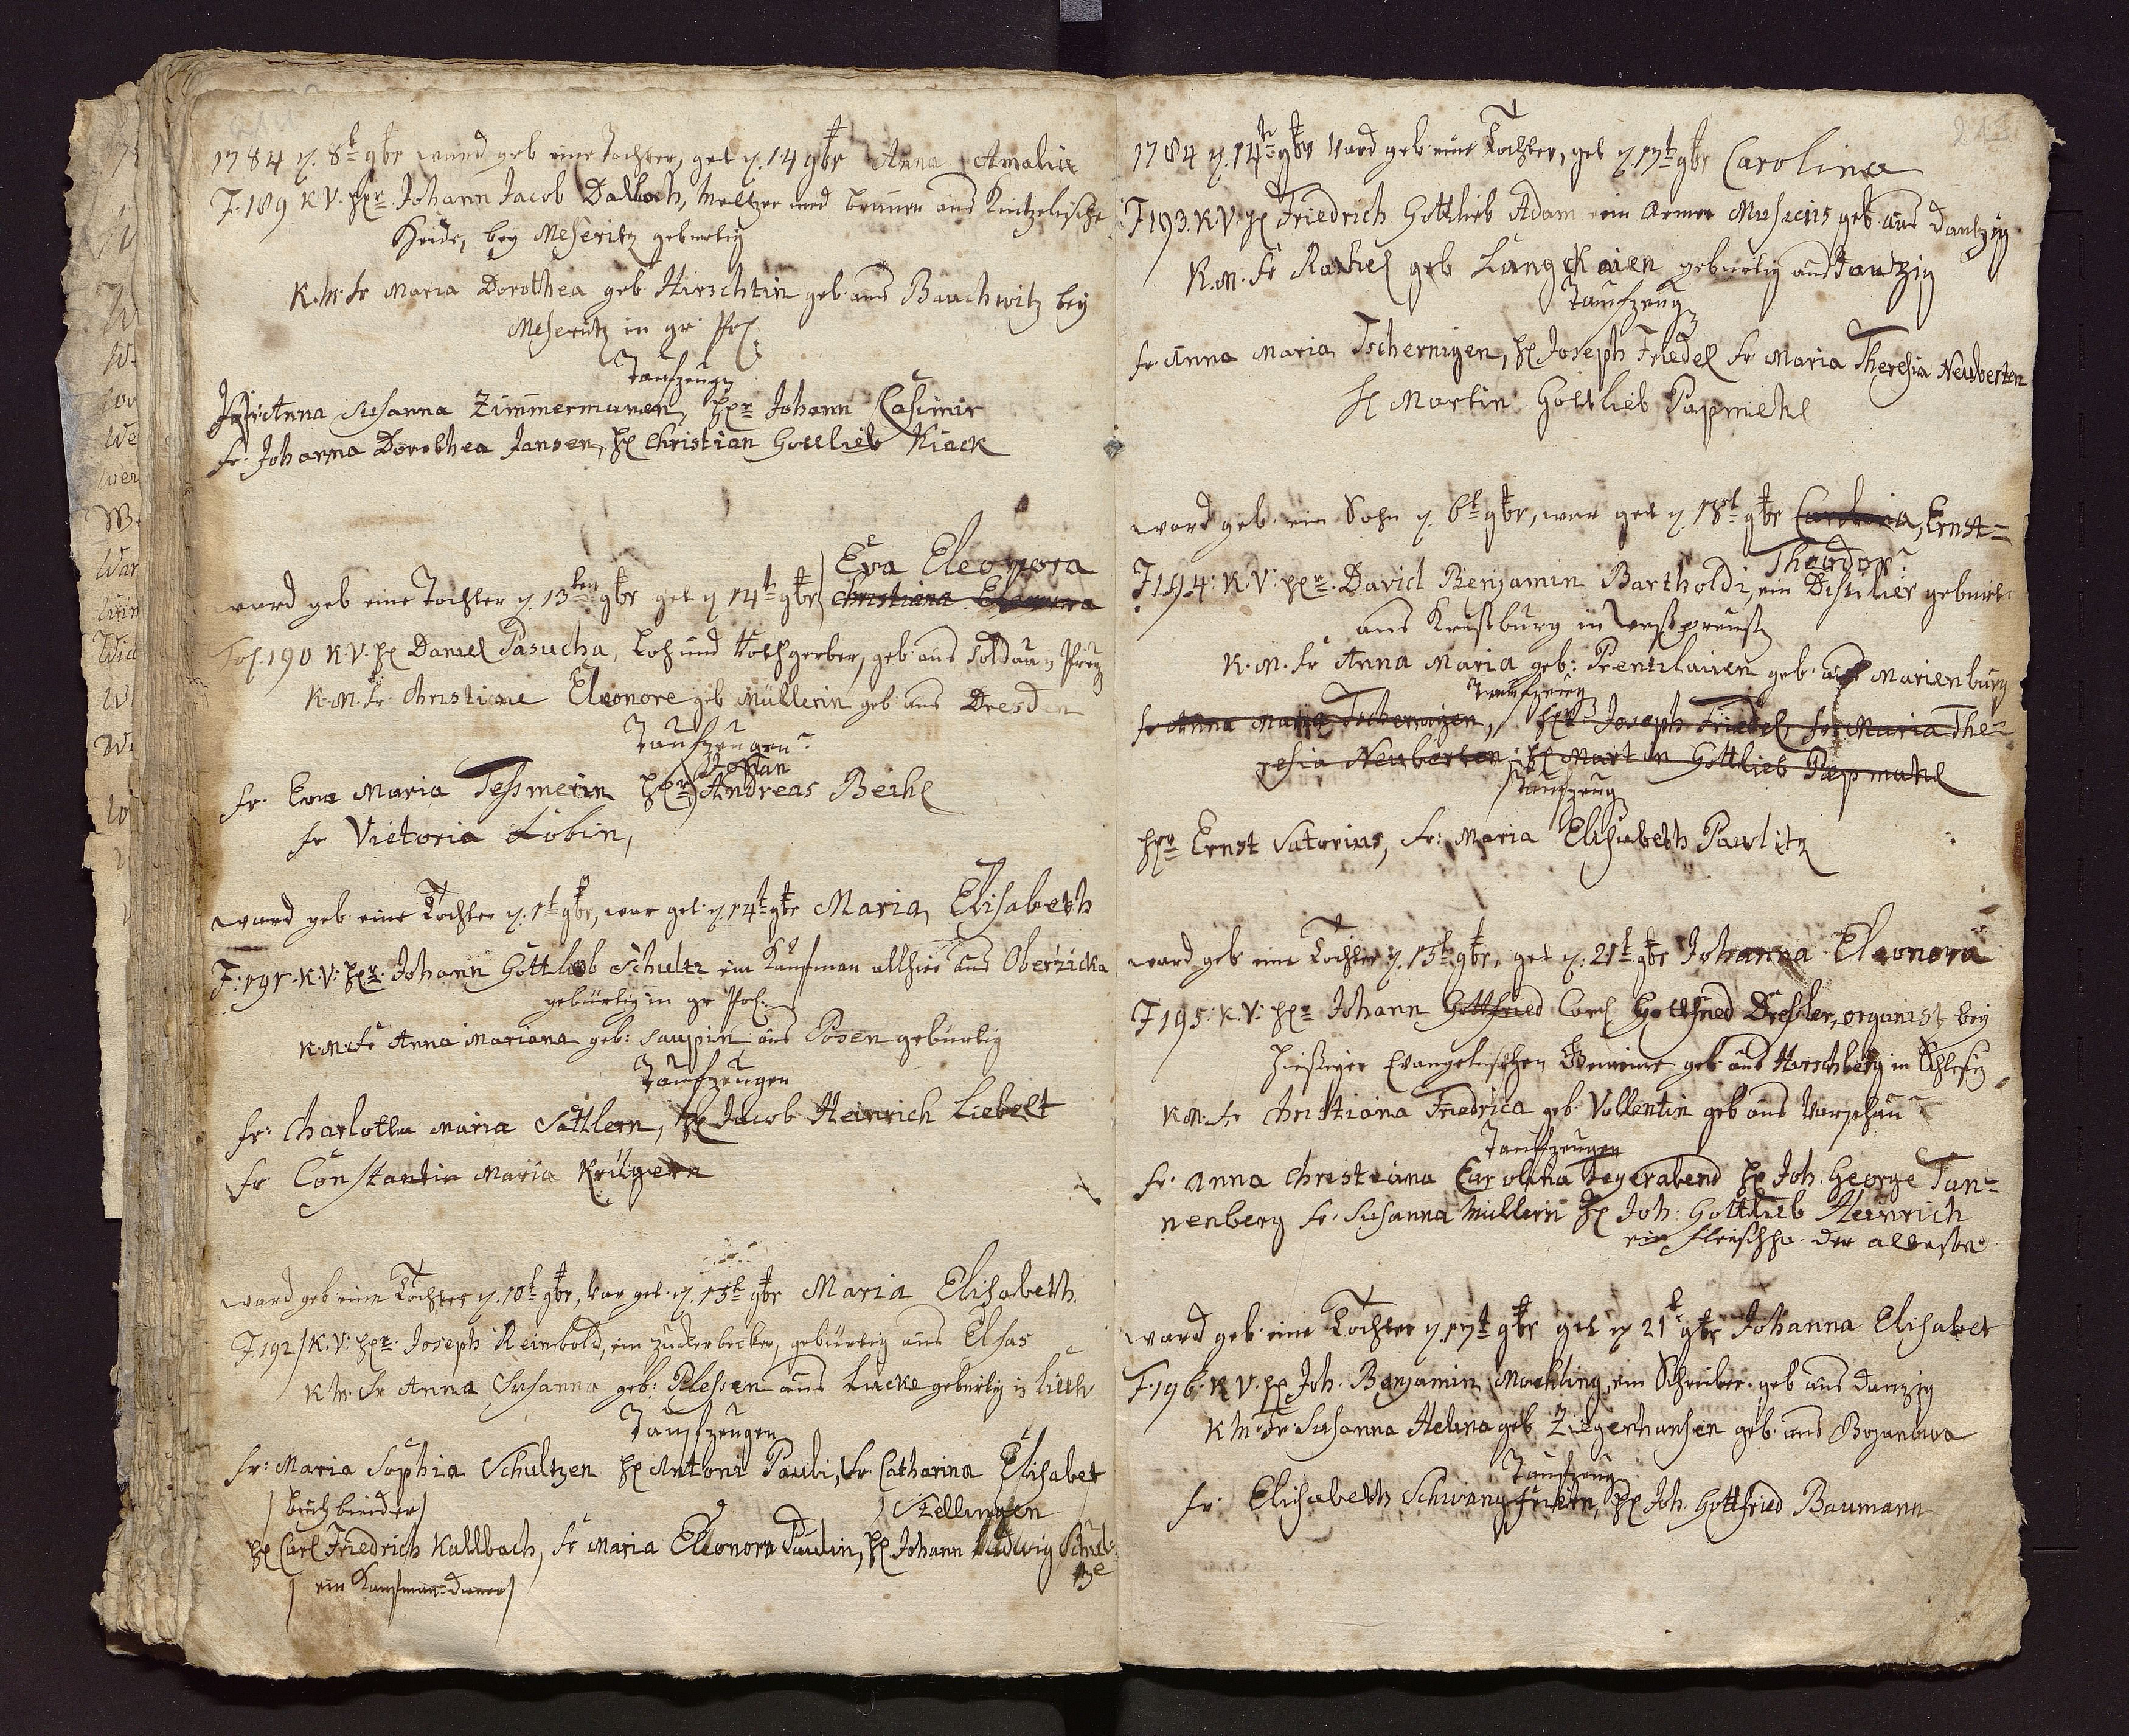 1784 d. 8t 9br ward geb eine Tochter, get d. 14 9br Anna Amalia
F. 189 K.V. Hr. Johann Jacob Dalloch, Meltzer und Breuer aus
Heide, bey Meseritz geburtig
K.M. fr Maria Dorothea geb Hirschtin geb. aus Bauchwitz bey
Meseritz in gr. Pol.
Taufzeug
Anna Susanna Zimmermanen, Hr Johann Casimir
fr. Johanna Dorothea Jansen, H Christian Gottlieb Kiack
Eva Eleonora
ward geb eine Tochter d 13ten 9br get d 14t 9br Christiana Eleonora
Fol. 190 K.V. H Daniel Pasucha, Loh und Rothgerber, geb. aus Soldau in Preuß
K.M. fr Christiane Eleonore geb Müllerin geb aus Dresden
Taufzeugen
fr. Eva Maria Tessmerin Hr Andreas Beihl
fr Victoria Löbin,
ward geb. eine Tochter d. 1t 9br, war get. d. 14t 9br Maria, Elisabeth
F: 191. K.V: Hr. Johann Gottlob Schultz ein Kaufman allhie aus Oberzicka
gebürtig in gr Pol.
K.M. fr Anna Mariana geb: Saupin aus Posen gebürtig
Taufzeugen
fr: Charlotha Maria Sattlern, H Jacob Heinrich Liebelt
fr Constantia Maria Krügern
ward geb eine Tochter d. 10t 9br, war get. d. 15t 9br Maria Elisabeth.
F 192/ K.V: Hr. Joseph Reinbold, ein Zuckerbecker, gebürtig aus Elsas
K.M. fr Anna Susanna geb: Plessen aus Lucke geburtig in Litth
Taufzeugen
fr: Maria Sophia Schultzen H Antoni Paubi, fr. Catharina Elisabet
/ buchbinder / / Stellingen
H Carl Friedrich Kallbach, fr Maria Eleonora Paulin, H Johann Ludwig Schul-
/ ein Kaufman-diener / tze
1784 d. 14t 9br ward geb. eine Tochter, get d. 17t 9br Carolina
F 193. K.V. H Friedrich Gottlieb Adam ein armer Musicus geb aus Dantzig
K.M. fr Rachel geb Langckaien geburtig aus Dantzig
Taufzeug
fr. Anna Maria Tschernigen, H Joseph Friedel fr Maria Theresia Neuberten
H Martin Gottlieb Papmehl
ward geb. ein Sohn d. 6t 9br, war get d. 18t 9br Carolina, Ernst-
Theodor
F 194: K.V: Hr. David Benjamin Bartholdi, ein Distilier geburt.
aus Kreutzburg in
K.M. fr Anna Maria geb: Prentzlauen geb. aus Marienburg
Taufzeug
fr Anna Maria Tschernigen, Hr Joseph Friedel fr Maria The-
resia Neuberten, H Martin Gottlieb Papmahl
Taufzeug
Hr Ernst Satorius, fr: Maria Elisabeth Pawlitz
ward geb eine Tochter d. 15t 9br, get d. 21t 9br Johanna Eleonora
F 195: K.V: Hr Johann Gottfried Carl Gottfried Dressler, organist bey
hiesiger Evangelischen Gemeine geb aus Horschberg in Schlesig
K.M. fr Christiana Friedrica geb. Vollentin geb aus Varschau
Taufzeugen
fr. Anna Christiana Carolina Feyerabend H Joh. George Tan-
nenberg fr. Susanna Müllerin H Joh: Gottlieb Heinrich
ein Fleischha. der
ward geb. eine Tochter d. 17t 9br get d 21t 9br Johanna Elisabet
F 196. K V. H Joh. Benjamin Mochling, ein Schreiber. geb aus Danzig
K M fr Susanna Helena geb Ziegerhansen geb. aus Bojanowa
Taufzeug
fr. Elisabeth, H Joh. Gottfried Baumann